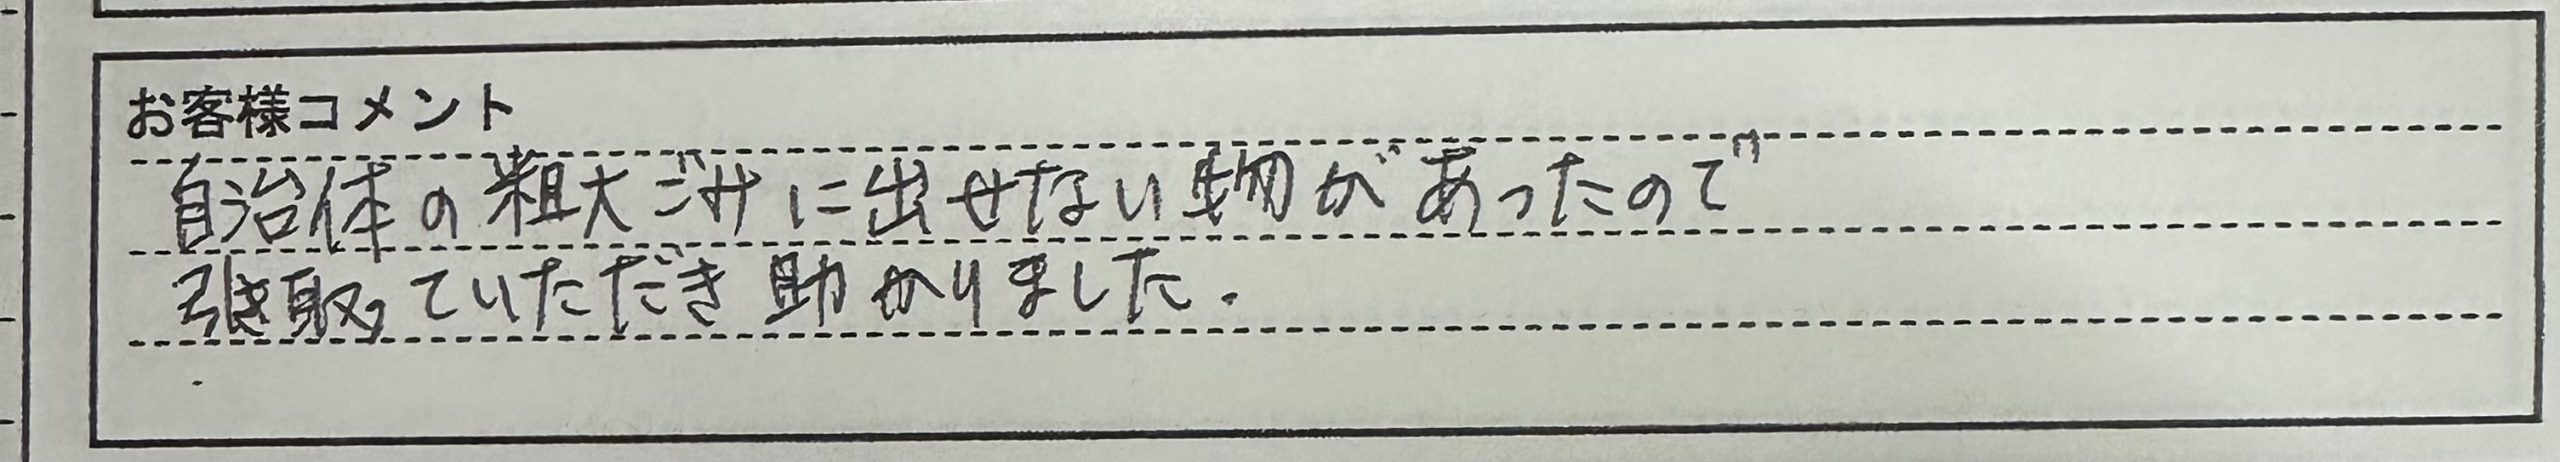 お客様コメント
自治体の粗大ゴミに出せない物があったので
引き取っていただき助かりました.